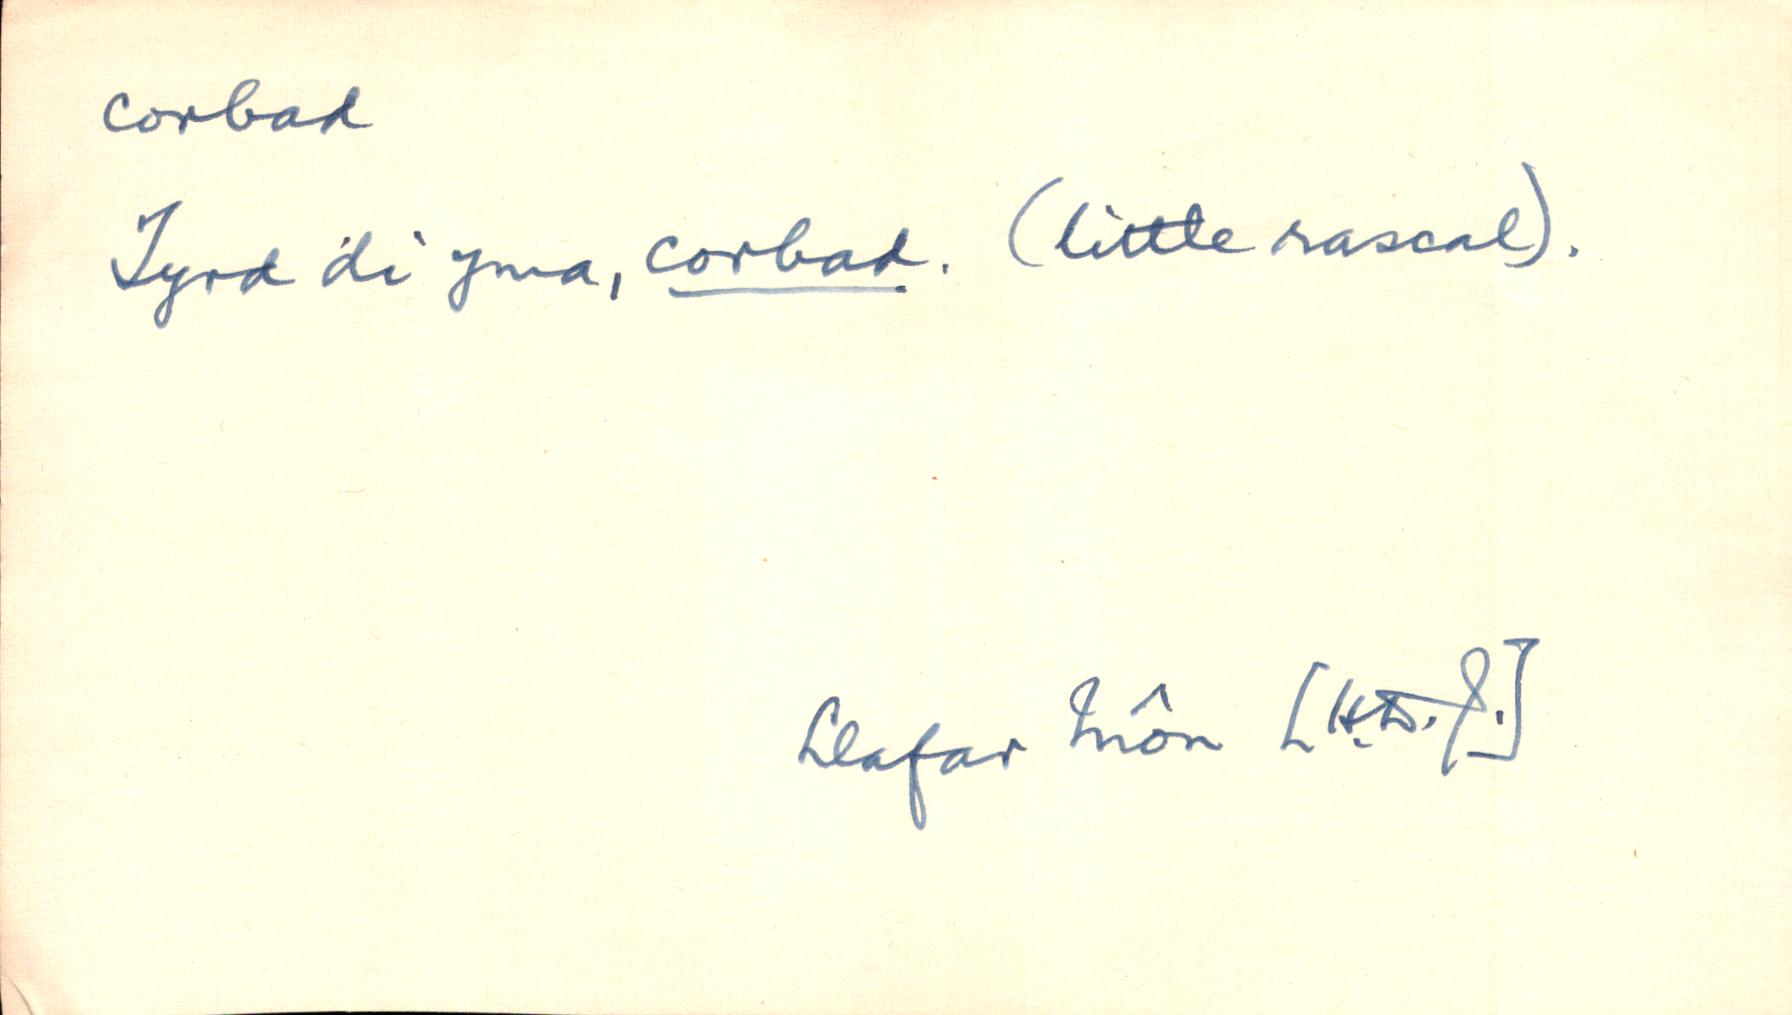 corbad
Tyrd di yma, corbad. (little rascal).
Llafar Môn [H.D.J.]